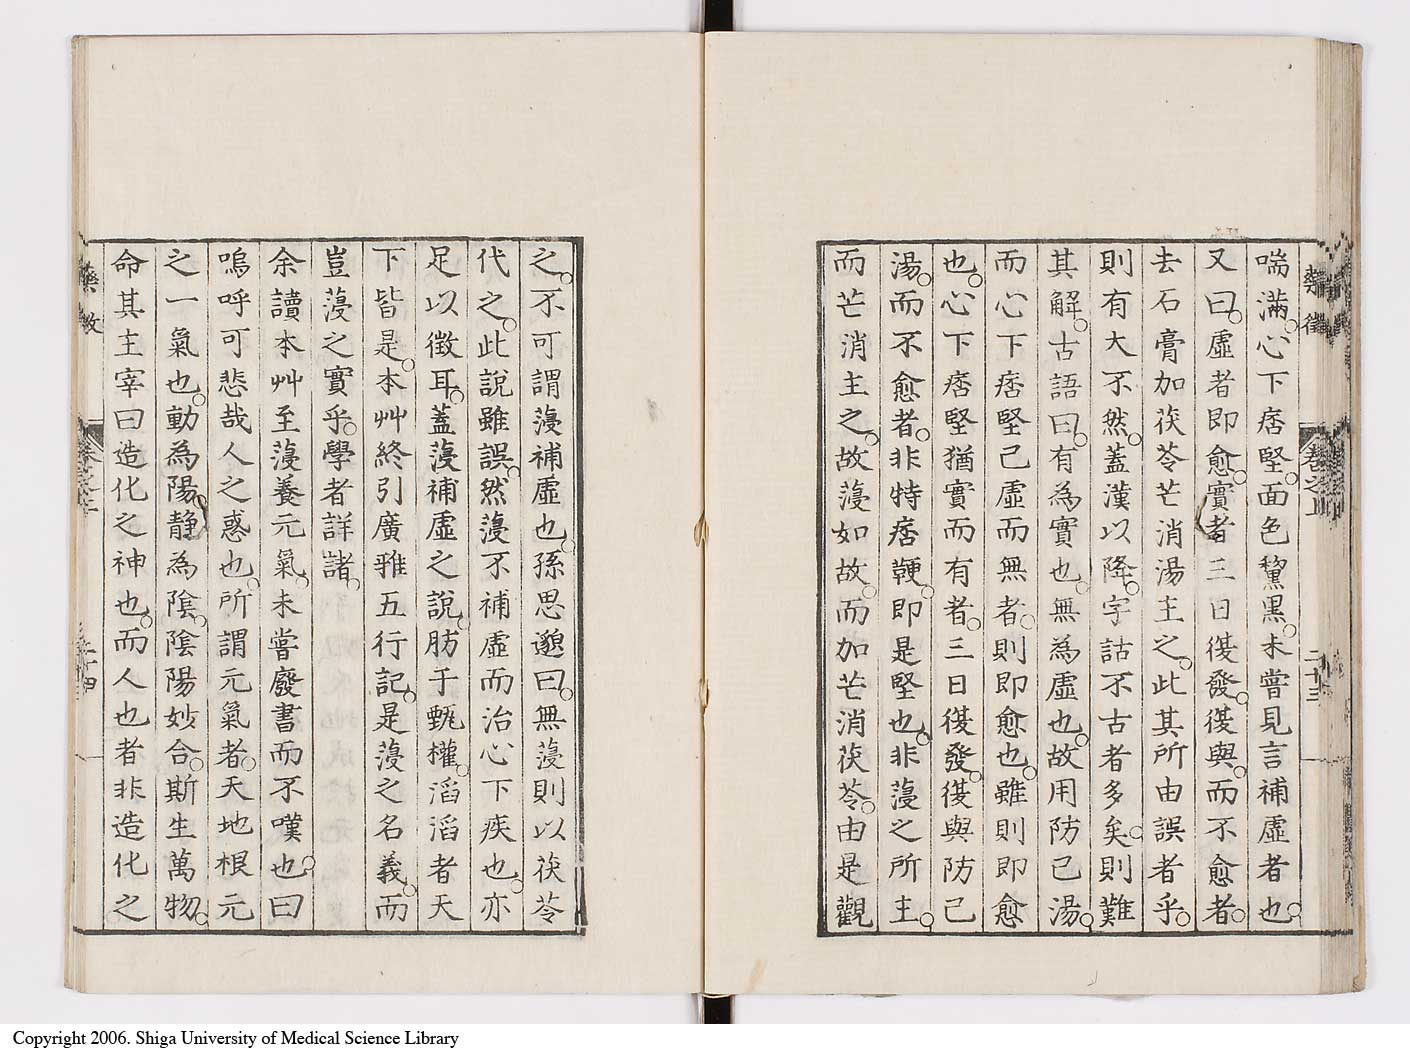 藥徵
卷之上
二十三
喘滿。心下痞堅。面色黧黑。未嘗見言補虛者也。
又曰。虛者即愈。實者三日復發。復與。而不愈者。
去石膏加茯苓芒消湯主之。此其所由誤者乎。
則有大不然。蓋漢以降。字詁不古者多矣。則難
其解。古語曰。有為實也。無為虛也。故用防己湯。
而心下痞堅己虛而無者。則即愈也。雖則即愈
也。心下痞堅猶實而有者。三日復發。復與防己
湯。而不愈者。非特痞鞕。即是堅也。非薓之所主。
而芒消主之。故薓如故。而加芒消茯苓。由是觀
之。不可謂薓補虛也。孫思邈曰。無薓則以茯苓
代之。此說雖誤。然薓不補虛而治心下疾也。亦
足以徵耳。蓋薓補虛之說。肪于甄權。滔滔者天
下皆是。本艸終引廣雅五行記。是薓之名義。而
豈薓之實乎。學者詳諸。
余讀本艸至薓養元氣。未嘗廢書而不嘆也。曰
嗚呼可悲哉人之惑也。所謂元氣者。天地根元
之一氣也。動為陽。静為陰。陰陽妙合。斯生萬物。
命其主宰曰造化之神也。而人也者非造化之
藥徵
二十四
Copyright 2006. Shiga University of Medical Science Library